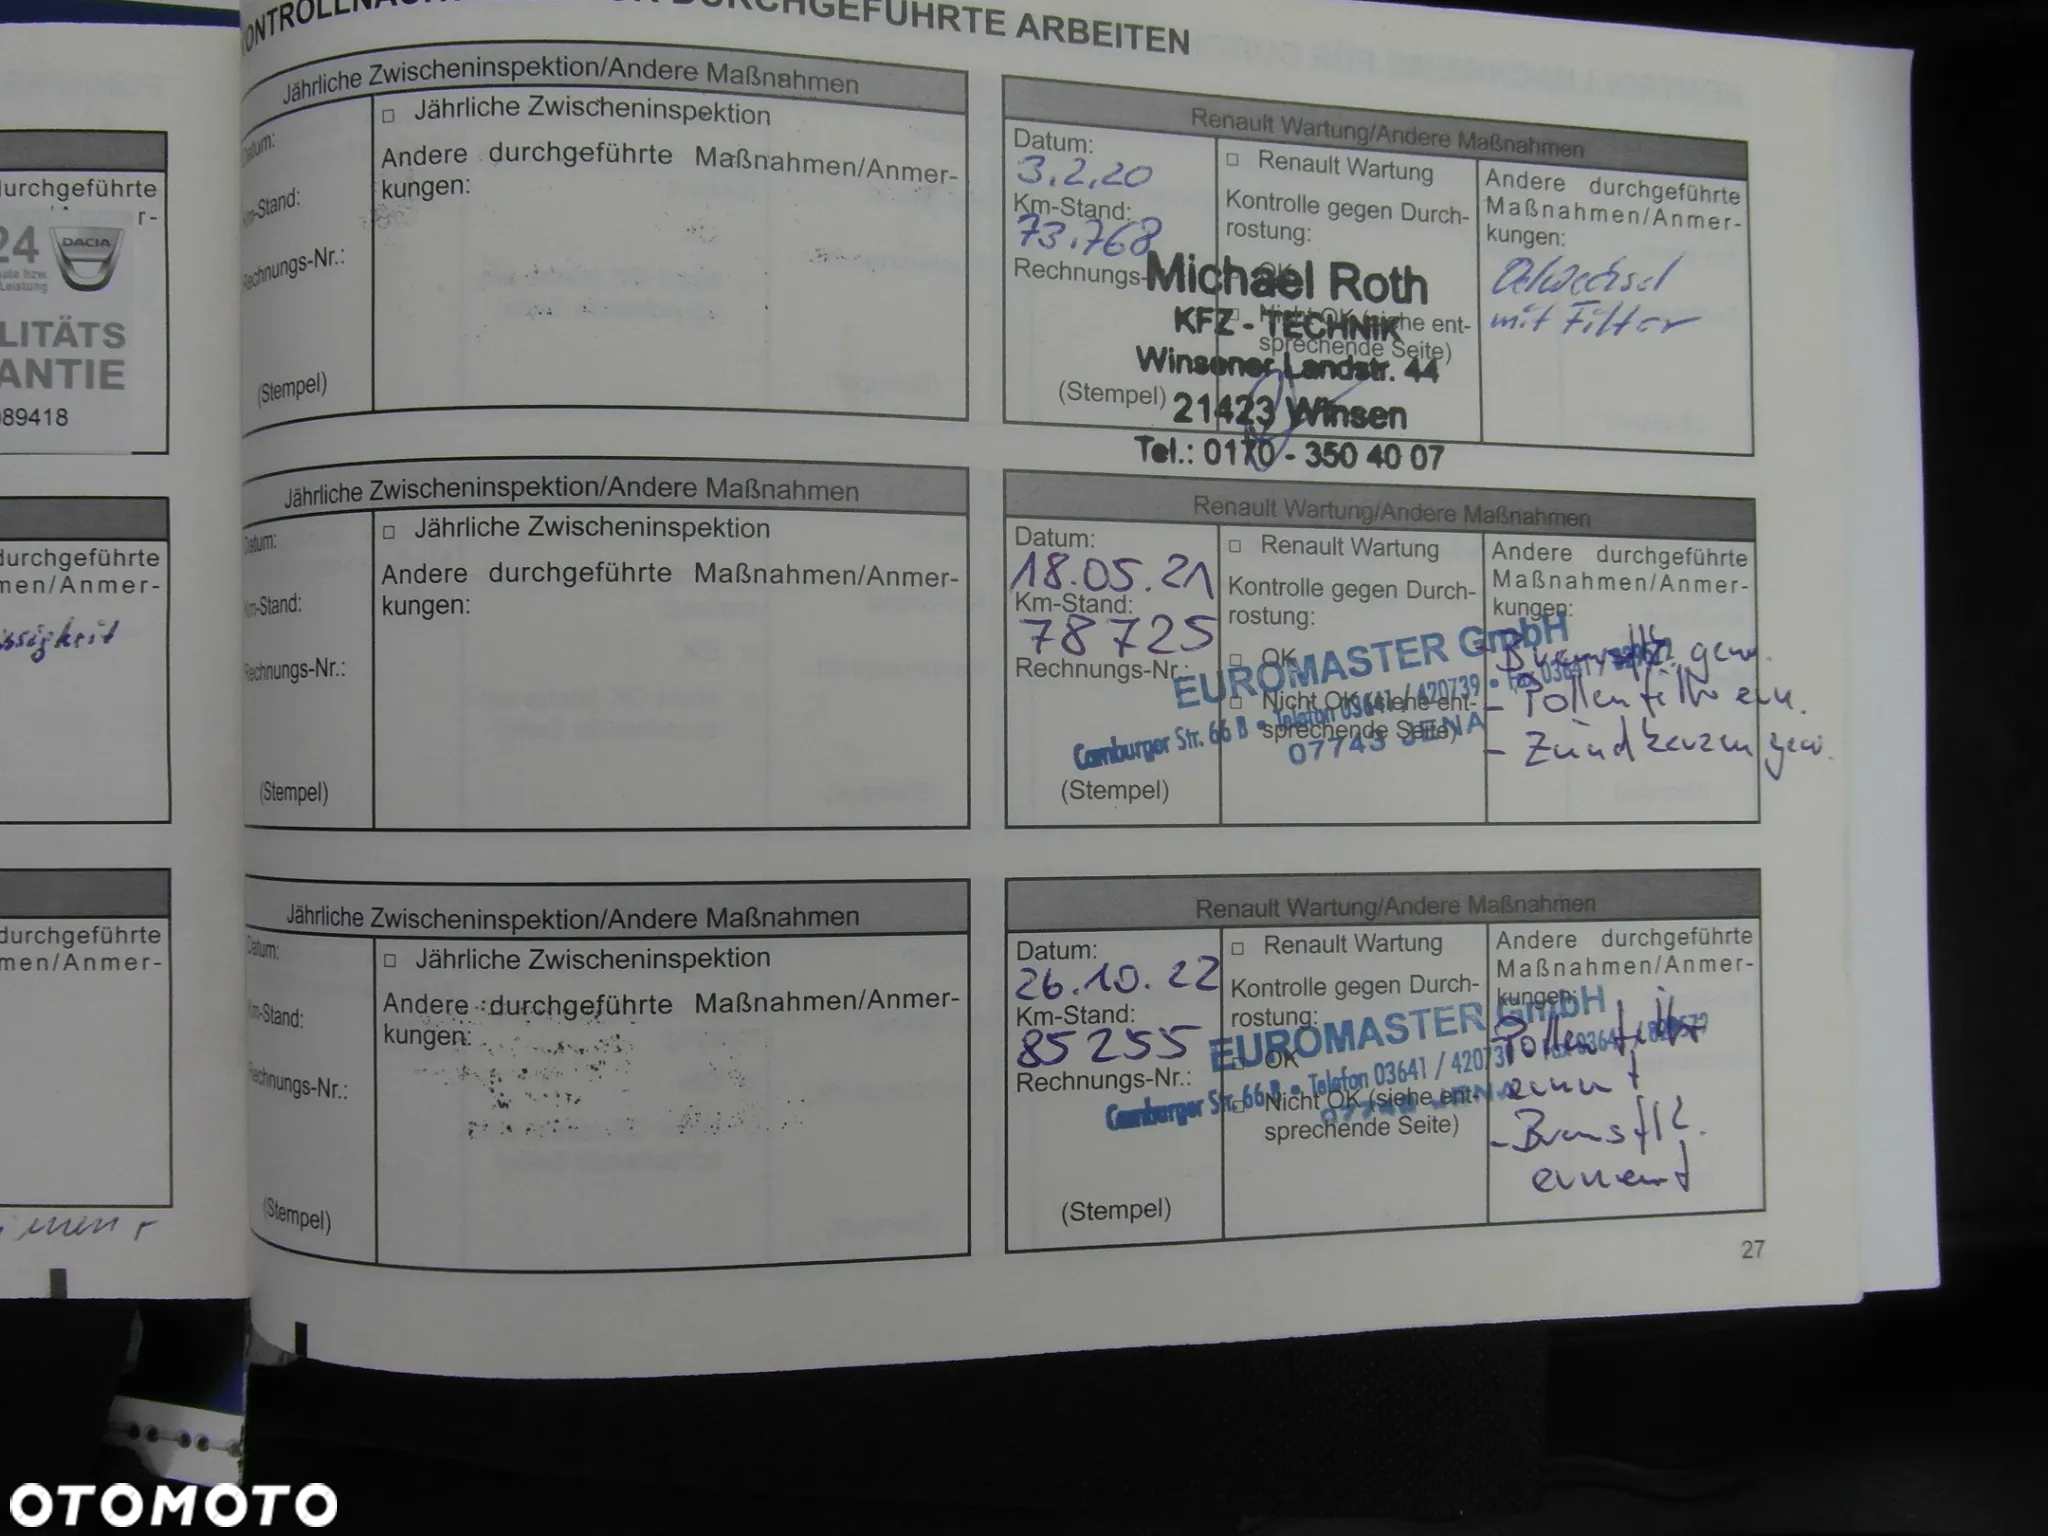 DURCHGEFÜHRTE ARBEITEN
durchgeführte
r-
24
DACIA
Leistung
LITÄTS
ANTIE
089418
durchgeführte
men/Anmer-
ssigkeit
durchgeführte
men/Anmer-
Jährliche Zwischeninspektion/Andere Maßnahmen
Datum:
Km-Stand:
Rechnungs-Nr.:
(Stempel)
□ Jährliche Zwischeninspektion
Andere durchgeführte Maßnahmen/Anmer-
kungen:
Renault Wartung/Andere Maßnahmen
Datum:
3.2.20
Km-Stand:
73.768
Rechnungs-
(Stempel)
□ Renault Wartung
Kontrolle gegen Durch-
rostung:
OK
Nicht OK (siehe ent-
sprechende Seite)
Michael Roth
KFZ - TECHNIK
Winsener Landstr. 44
21423 Winsen
Tel.: 0170 - 350 40 07
Andere durchgeführte
Maßnahmen/Anmer-
kungen:
Oelwechsel
mit Filter
Jährliche Zwischeninspektion/Andere Maßnahmen
Datum:
Km-Stand:
Rechnungs-Nr.:
(Stempel)
□ Jährliche Zwischeninspektion
Andere durchgeführte Maßnahmen/Anmer-
kungen:
Renault Wartung/Andere Maßnahmen
Datum:
18.05.21
Km-Stand:
78725
Rechnungs-Nr.:
(Stempel)
□ Renault Wartung
Kontrolle gegen Durch-
rostung:
□ OK
□ Nicht OK (siehe ent-
sprechende Seite)
EUROMASTER GmbH
Camburger Str. 66 B • Telefon 03641 / 420739 •
07743 JENA
Andere durchgeführte
Maßnahmen/Anmer-
kungen:
- Pollenfilter ern.
- Zündkerzen gew.
Jährliche Zwischeninspektion/Andere Maßnahmen
Datum:
Km-Stand:
Rechnungs-Nr.:
(Stempel)
□ Jährliche Zwischeninspektion
Andere durchgeführte Maßnahmen/Anmer-
kungen:
Renault Wartung/Andere Maßnahmen
Datum:
26.10.22
Km-Stand:
85255
Rechnungs-Nr.:
(Stempel)
□ Renault Wartung
Kontrolle gegen Durch-
rostung:
□ OK
□ Nicht OK (siehe ent-
sprechende Seite)
EUROMASTER GmbH
Camburger Str. 66 B • Telefon 03641 / 42073
Andere durchgeführte
Maßnahmen/Anmer-
kungen:
Pollenfilter
- Bremsfl.
erneuert
27
OTOMOTO